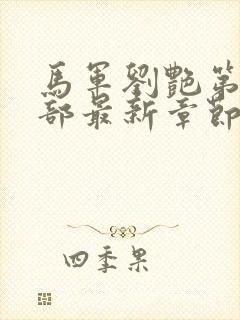 馬軍劉艷第
部最新章節
四季果